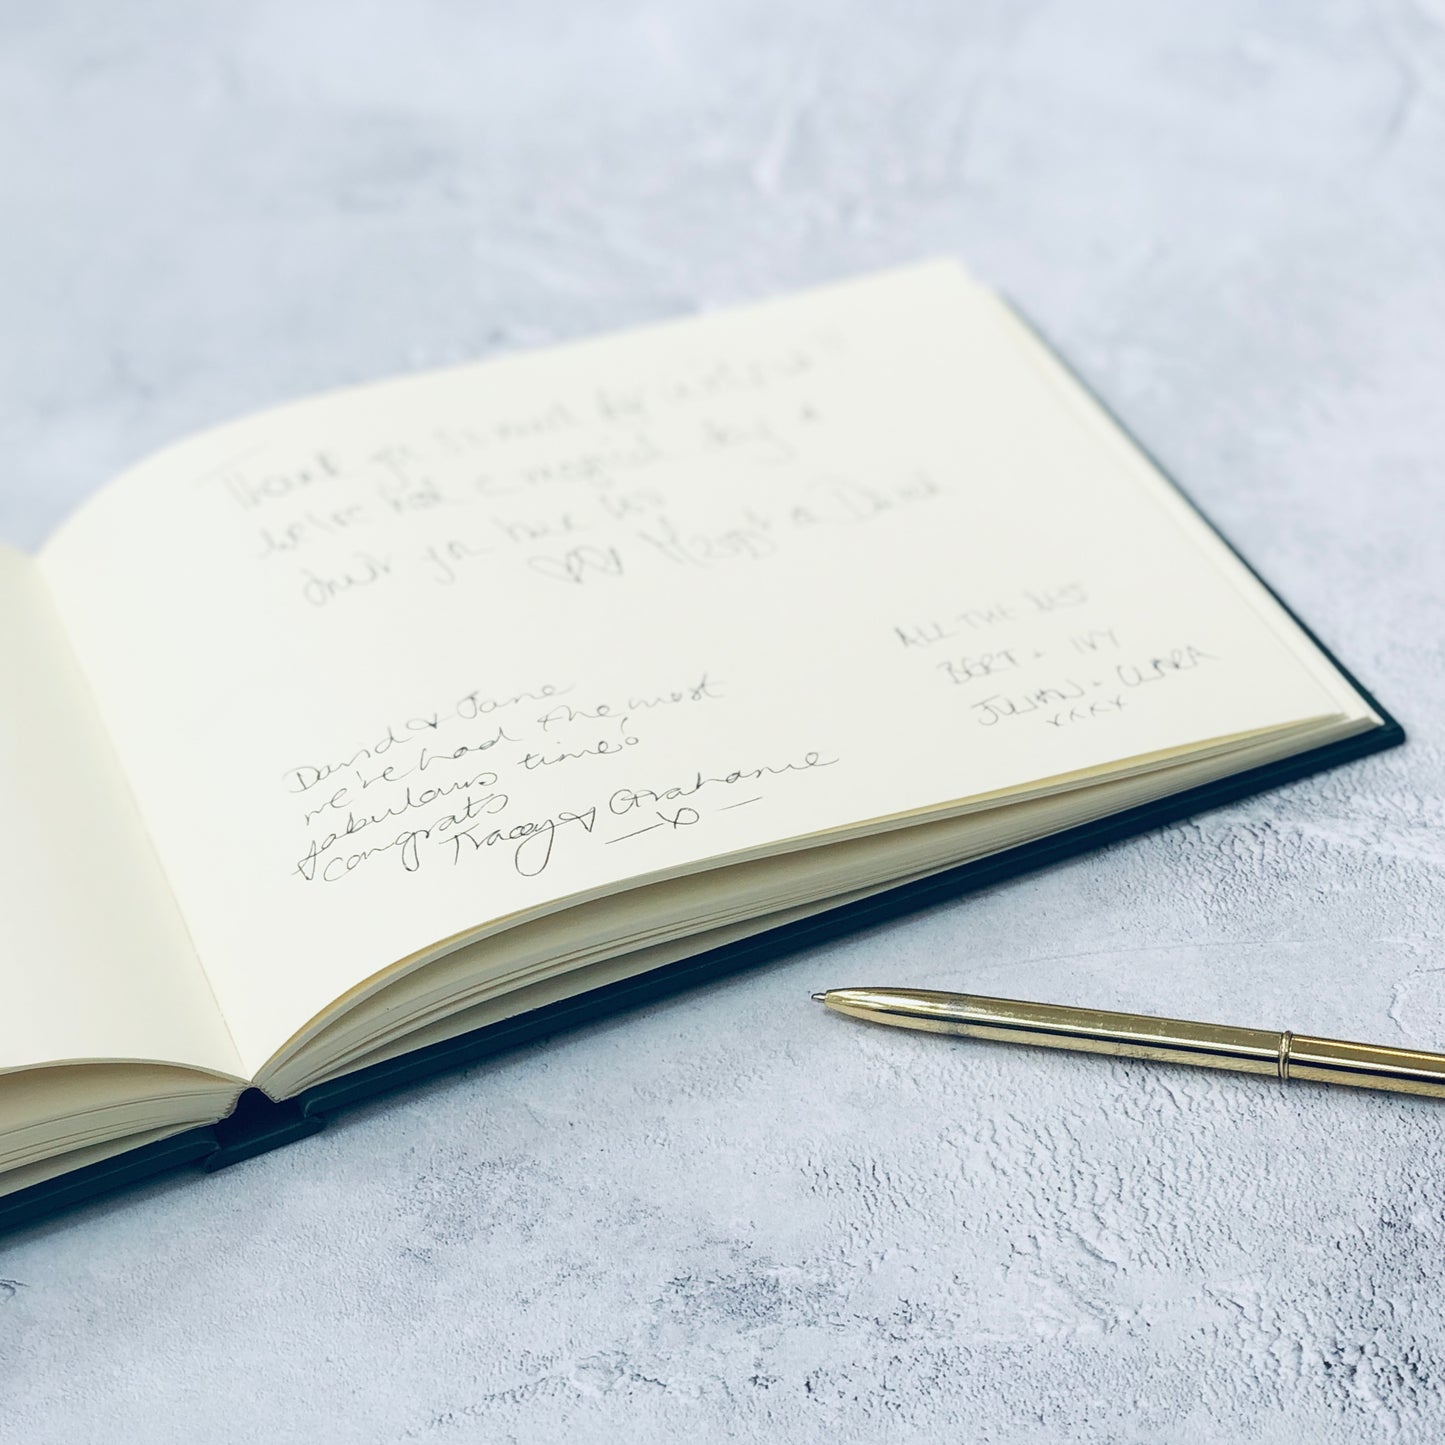 Thank you so much for inviting us
We've had a magical day &
you have us
Meggy & David
ALL THE BEST
BERT + IVY
JULIAN + CLARA
xxxx
David & Jane
we've had the most
fabulous time!
congrats
Tracey & Grahame
x